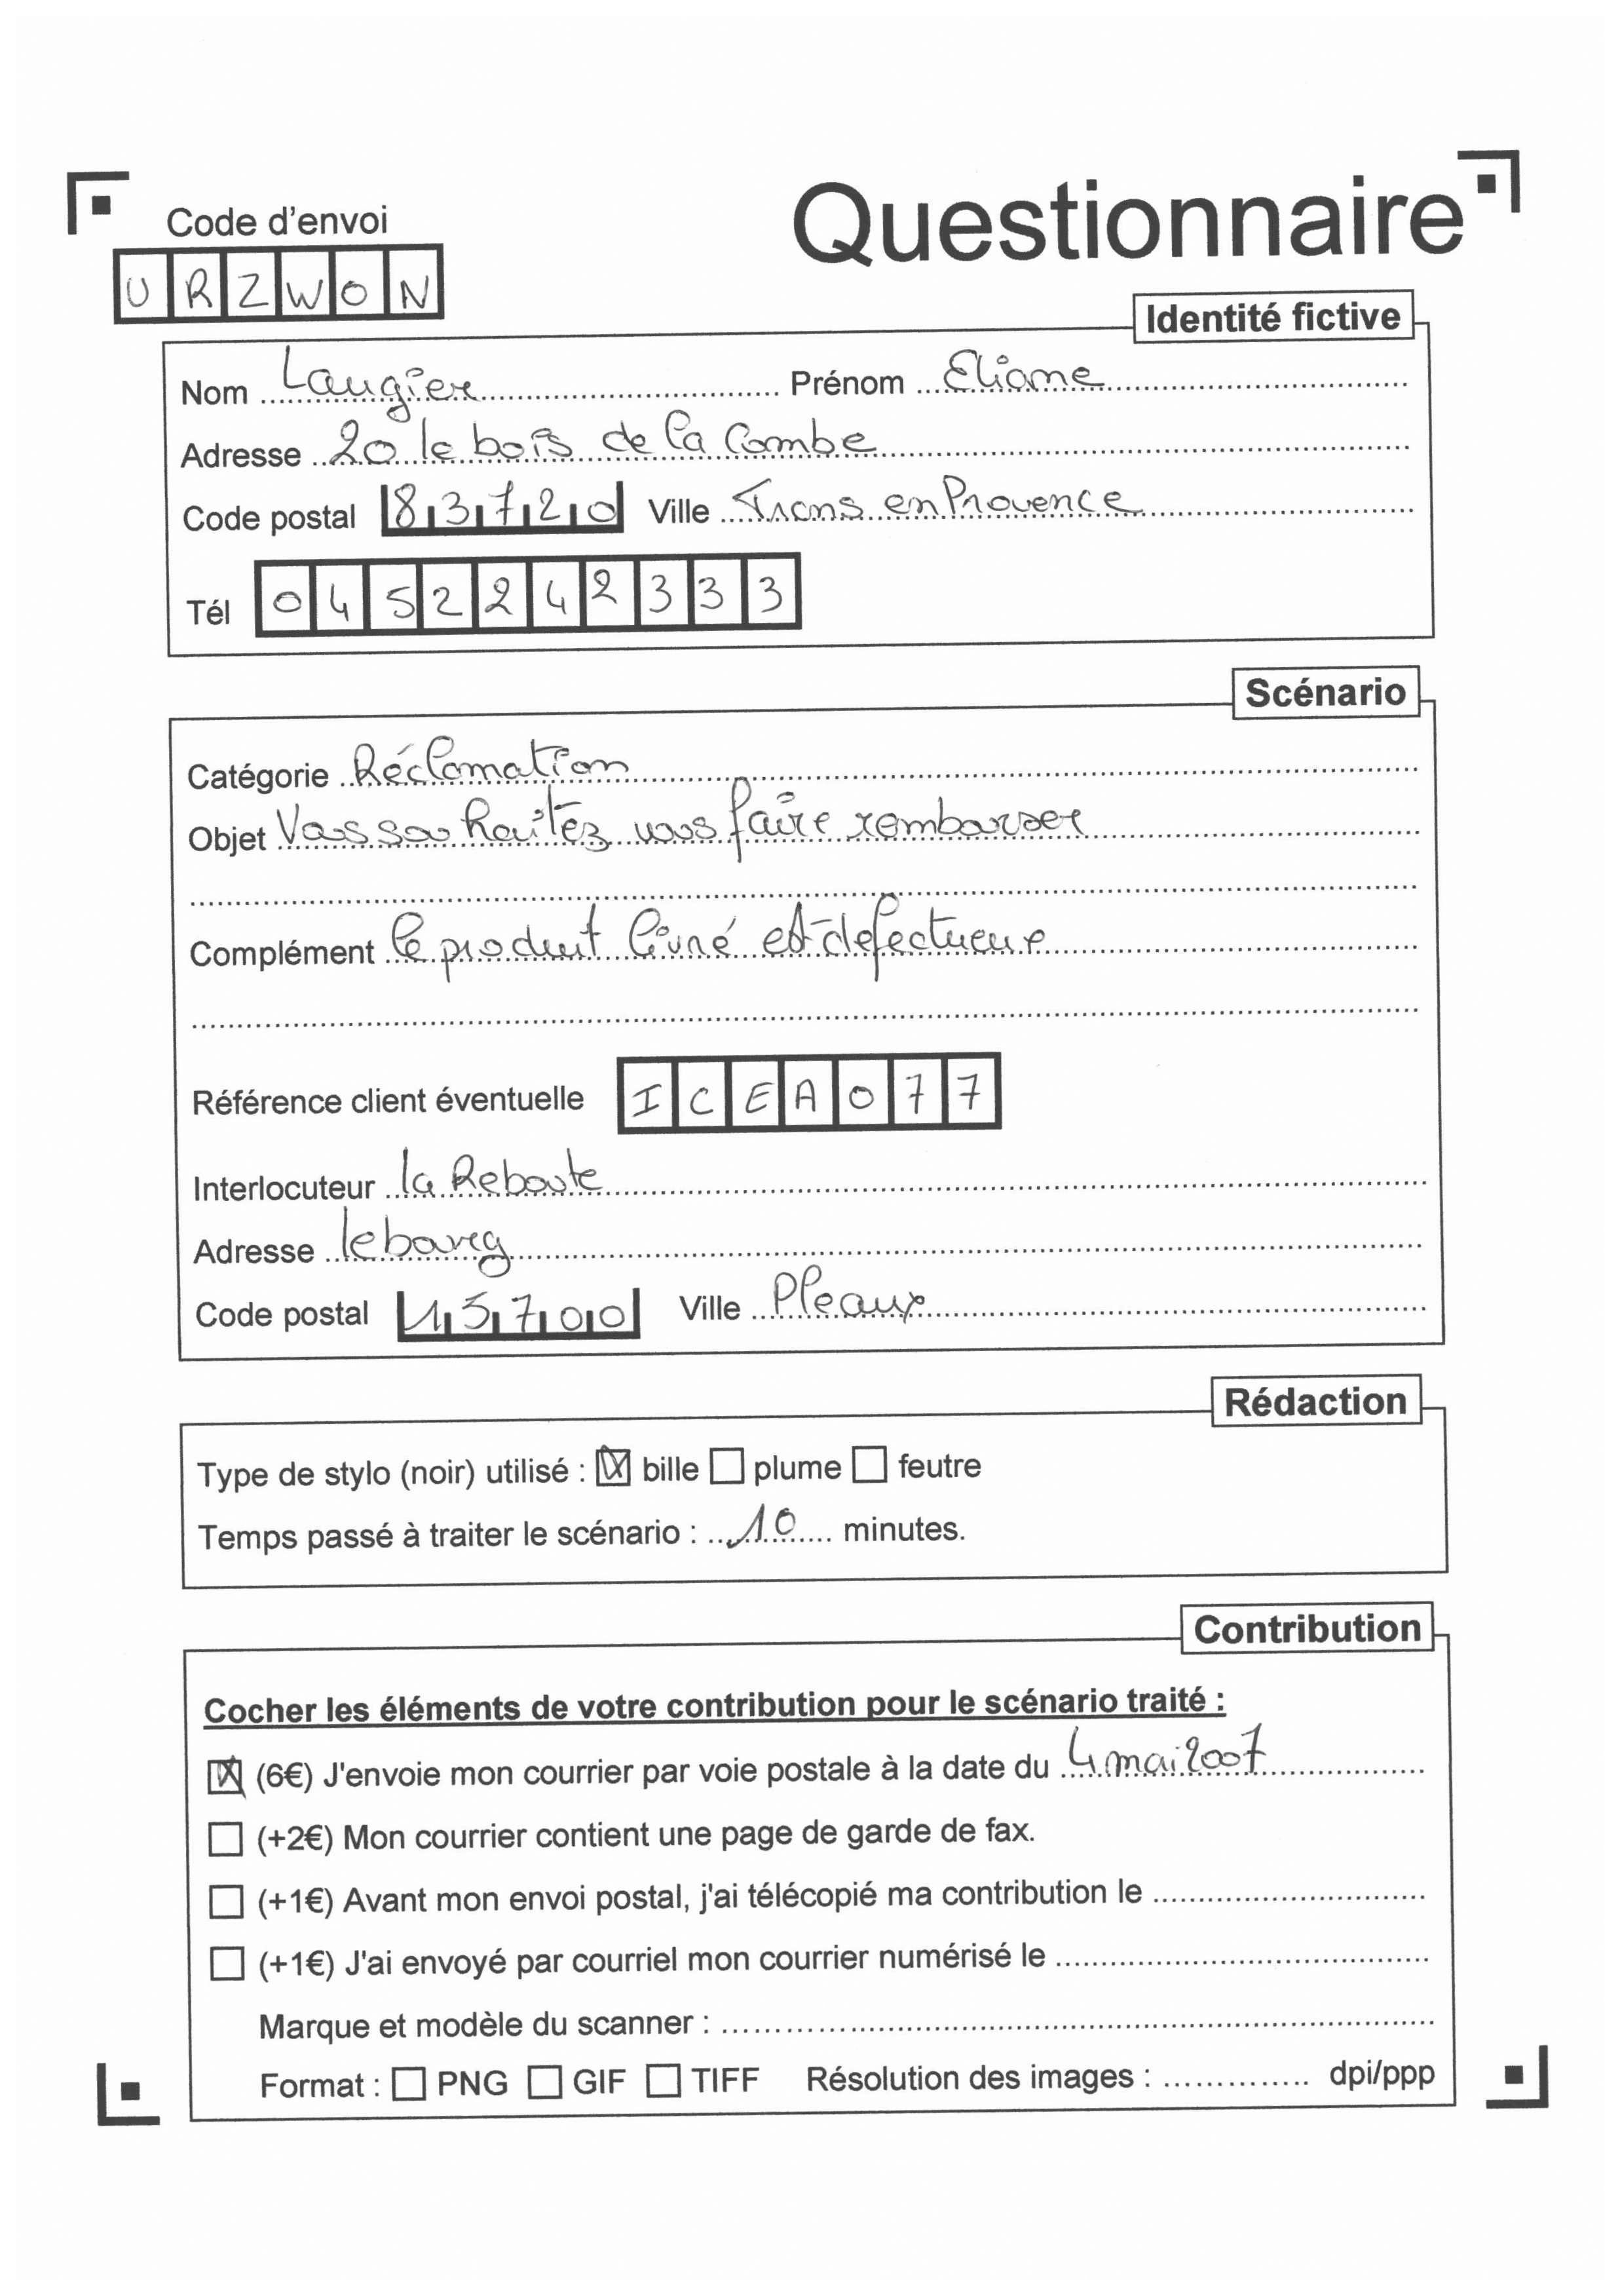 Questionnaire
Code d'envoi
URZWON
Identité fictive
Nom Laugier Prénom Eliane
Adresse 20 le bois de la Combe
Code postal 83720 Ville Trans en Provence
Tél 0452242333
Scénario
Catégorie Réclamation
Objet Vous souhaitez vous faire rembourser
Complément le produit livré est defectueux
Référence client éventuelle ICEA077
Interlocuteur la Reboute
Adresse le bourg
Code postal 15700 Ville Pleaux
Rédaction
Type de stylo (noir) utilisé : ☒ bille ☐ plume ☐ feutre
Temps passé à traiter le scénario : 10 minutes.
Contribution
Cocher les éléments de votre contribution pour le scénario traité :
☒ (6€) J'envoie mon courrier par voie postale à la date du 4 mai 2007
☐ (+2€) Mon courrier contient une page de garde de fax.
☐ (+1€) Avant mon envoi postal, j'ai télécopié ma contribution le
☐ (+1€) J'ai envoyé par courriel mon courrier numérisé le
Marque et modèle du scanner :
Format : ☐ PNG ☐ GIF ☐ TIFF Résolution des images : dpi/ppp